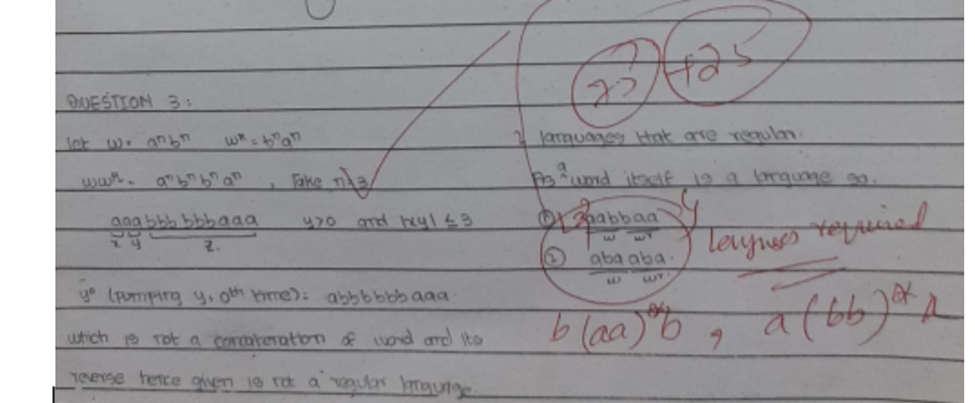 QUESTION 3:
let w = aⁿbⁿ wᴿ = bⁿaⁿ
wwᴿ = aⁿbⁿbⁿaⁿ , Take n=3
aaabbb bbbaaa y>0 and |xy| ≤ 3
x y z
y⁰ (pumping y, 0th time): abbbbbbaaa
which is not a concatenation of word and its
reverse hence given is not a regular language
languages that are regular.
As a word itself is a language so.
① aabbaa
w wr
② aba aba.
w wr
languages required
b(aa)*b , a(bb)*a
+25